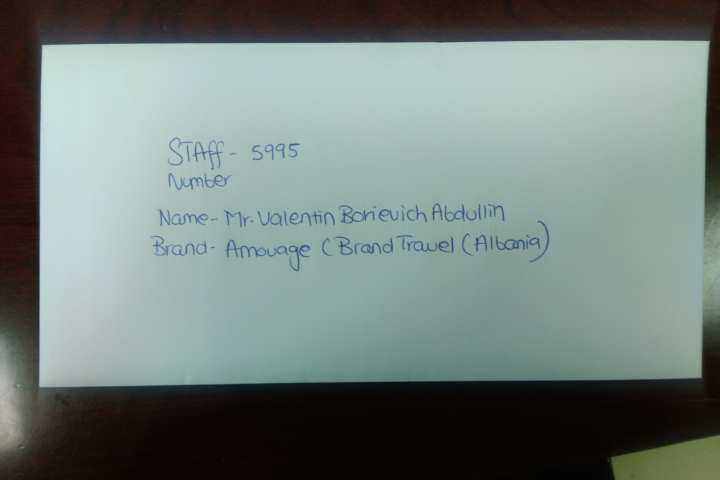 STAff - 5995
Number
Name - Mr. Valentin Borievich Abdullin
Brand - Amouage (Brand Travel (Albania)